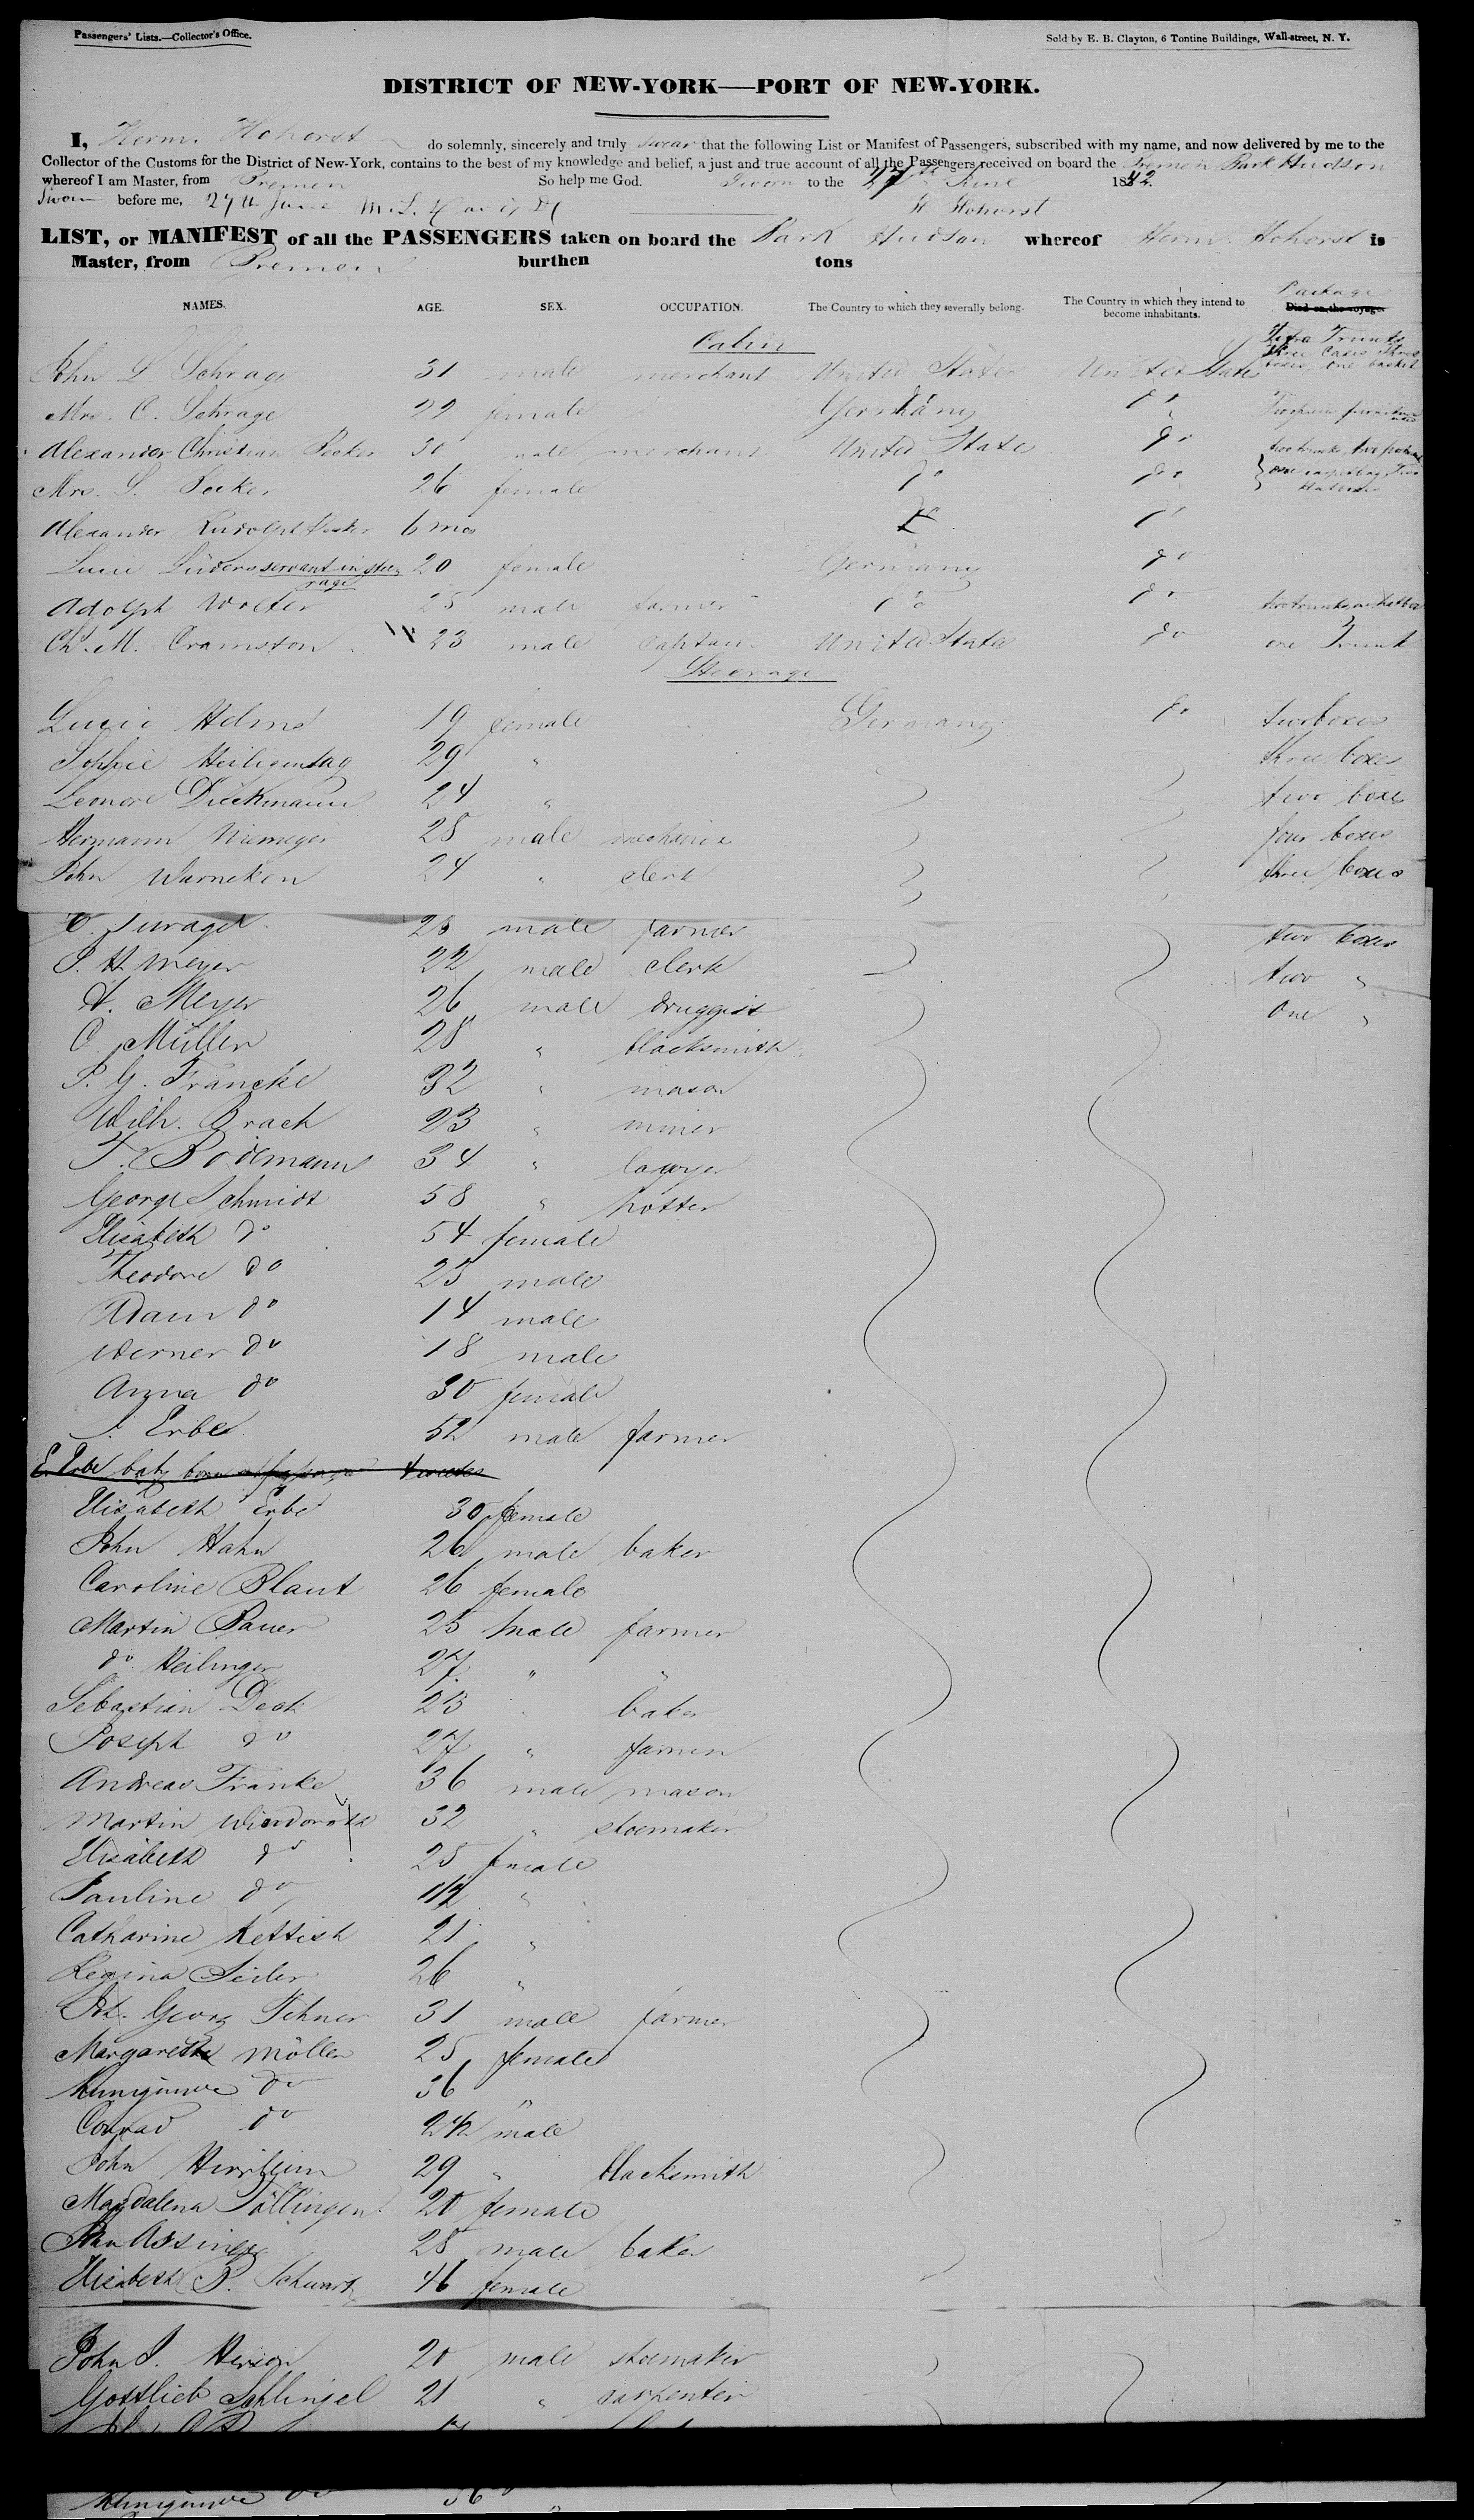 Passengers' Lists.—Collector's Office.
Sold by E. B. Clayton, 6 Tontine Buildings, Wall-street, N. Y.
DISTRICT OF NEW-YORK—PORT OF NEW-YORK.
I, Herm. Hohorst do solemnly, sincerely and truly swear that the following List or Manifest of Passengers, subscribed with my name, and now delivered by me to the
Collector of the Customs for the District of New-York, contains to the best of my knowledge and belief, a just and true account of all the Passengers received on board the Bremen Bark Hudson
whereof I am Master, from Bremen So help me God. Sworn to the 27th June 1842.
Sworn before me, 27th June H. Hohorst
LIST, or MANIFEST of all the PASSENGERS taken on board the Bark Hudson whereof Herm. Hohorst is
Master, from Bremen burthen tons
NAMES. AGE. SEX. OCCUPATION. The Country to which they severally belong. The Country in which they intend to become inhabitants. Package Died on the voyage.
Cabin
John L Schrage 31 male merchant United States United States Trunks three cases three boxes, one basket
Mrs. C. Schrage 22 female Germany do
Alexander Christian Becker 30 male merchant United State do two trunks
Mrs. S. Becker 26 female do do one carpetbag Two
Alexander Rudolph Becker 6 mos do do
Lucie Lüders servant in steerage 20 female Germany do
Adolph Wolter 25 male farmer do do two trunks
Ch. M. Cramston 23 male captain United States do one Trunk
Steerage
Lucie Helms 19 female Germany do two boxes
Sophie Heiligentag 29 " three boxes
Leonore Dieckmann 24 " two boxes
Hermann Niemeyer 28 male mechanic four boxes
John Warneken 24 " clerk three boxes
28 male farmer two boxes
S. H. Meyer 22 male clerk two "
H. Meyer 26 male druggist One "
C. Müller 28 " blacksmith
P. G. Francke 32 " mason
Wilh. Brach 23 " miner
F. Bodemann 34 " lawyer
George Schmidt 58 " potter
Elisabeth do 54 female
Theodore do 23 male
Adam do 14 male
Werner do 18 male
Anna do 30 female
J. Erbe 52 male farmer
E. Erbe baby born on passage two weeks
Elisabeth Erbe 30 female
John Hahn 26 male baker
Caroline Blaut 26 female
Martin Bauer 25 male farmer
do Heilinger 27 " "
Sebastian Deck 23 " baker
Joseph do 27 " farmer
Andreas Franke 36 male mason
Martin 32 " shoemaker
Elisabeth do 25 female
Pauline do 1/2 "
Catharine Kettish 21 "
Regina Seiler 26 "
Joh. Georg Fehner 31 male farmer
Margaretha Möller 25 female
Kunigunde do 36 "
Conrad do 2 1/2 male
John 29 " blacksmith
Magdalena Söllingen 20 female
28 male baker
Elisabeth B. Schwartz 46 female
John J. 20 male shoemaker
Gottlieb Schlingel 21 " carpenter
Kunigunde do 36